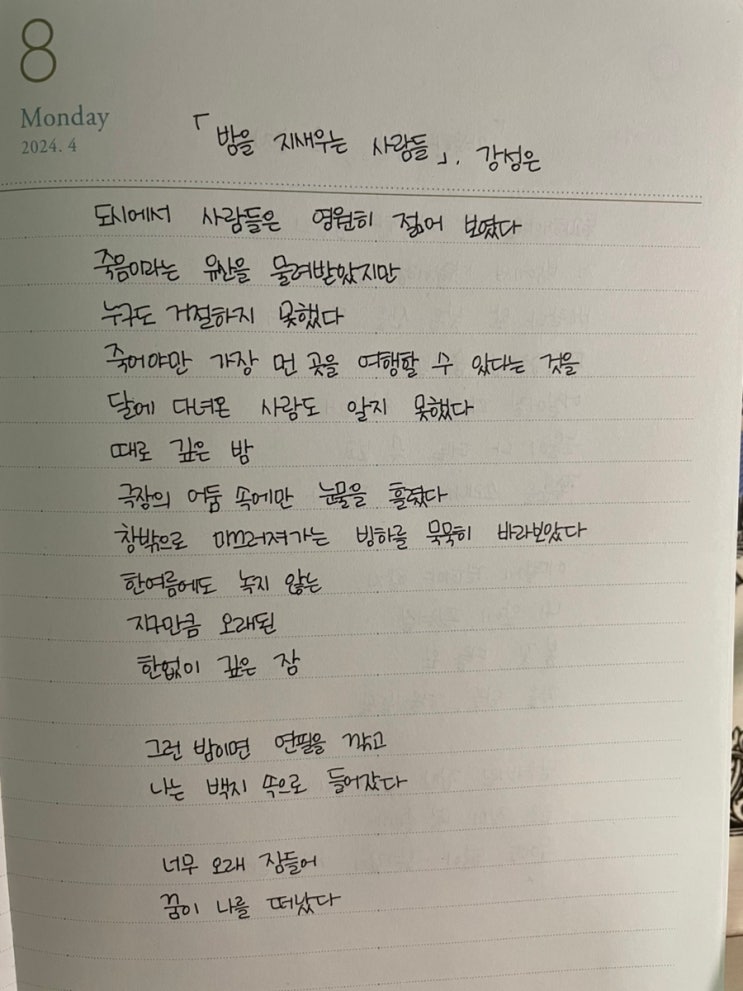 8
Monday
2024. 4
「밤을 지새우는 사람들」. 강성은
도시에서 사람들은 영원히 젊어 보였다
죽음이라는 유산을 물려받았지만
누구도 거절하지 못했다
죽어야만 가장 먼 곳을 여행할 수 있다는 것을
달에 다녀온 사람도 알지 못했다
때로 깊은 밤
극장의 어둠 속에만 눈물을 흘렸다
창밖으로 미끄러져가는 빙하를 묵묵히 바라보았다
한여름에도 녹지 않는
지구만큼 오래된
한없이 깊은 잠
그런 밤이면 연필을 깎고
나는 백지 속으로 들어갔다
너무 오래 잠들어
꿈이 나를 떠났다